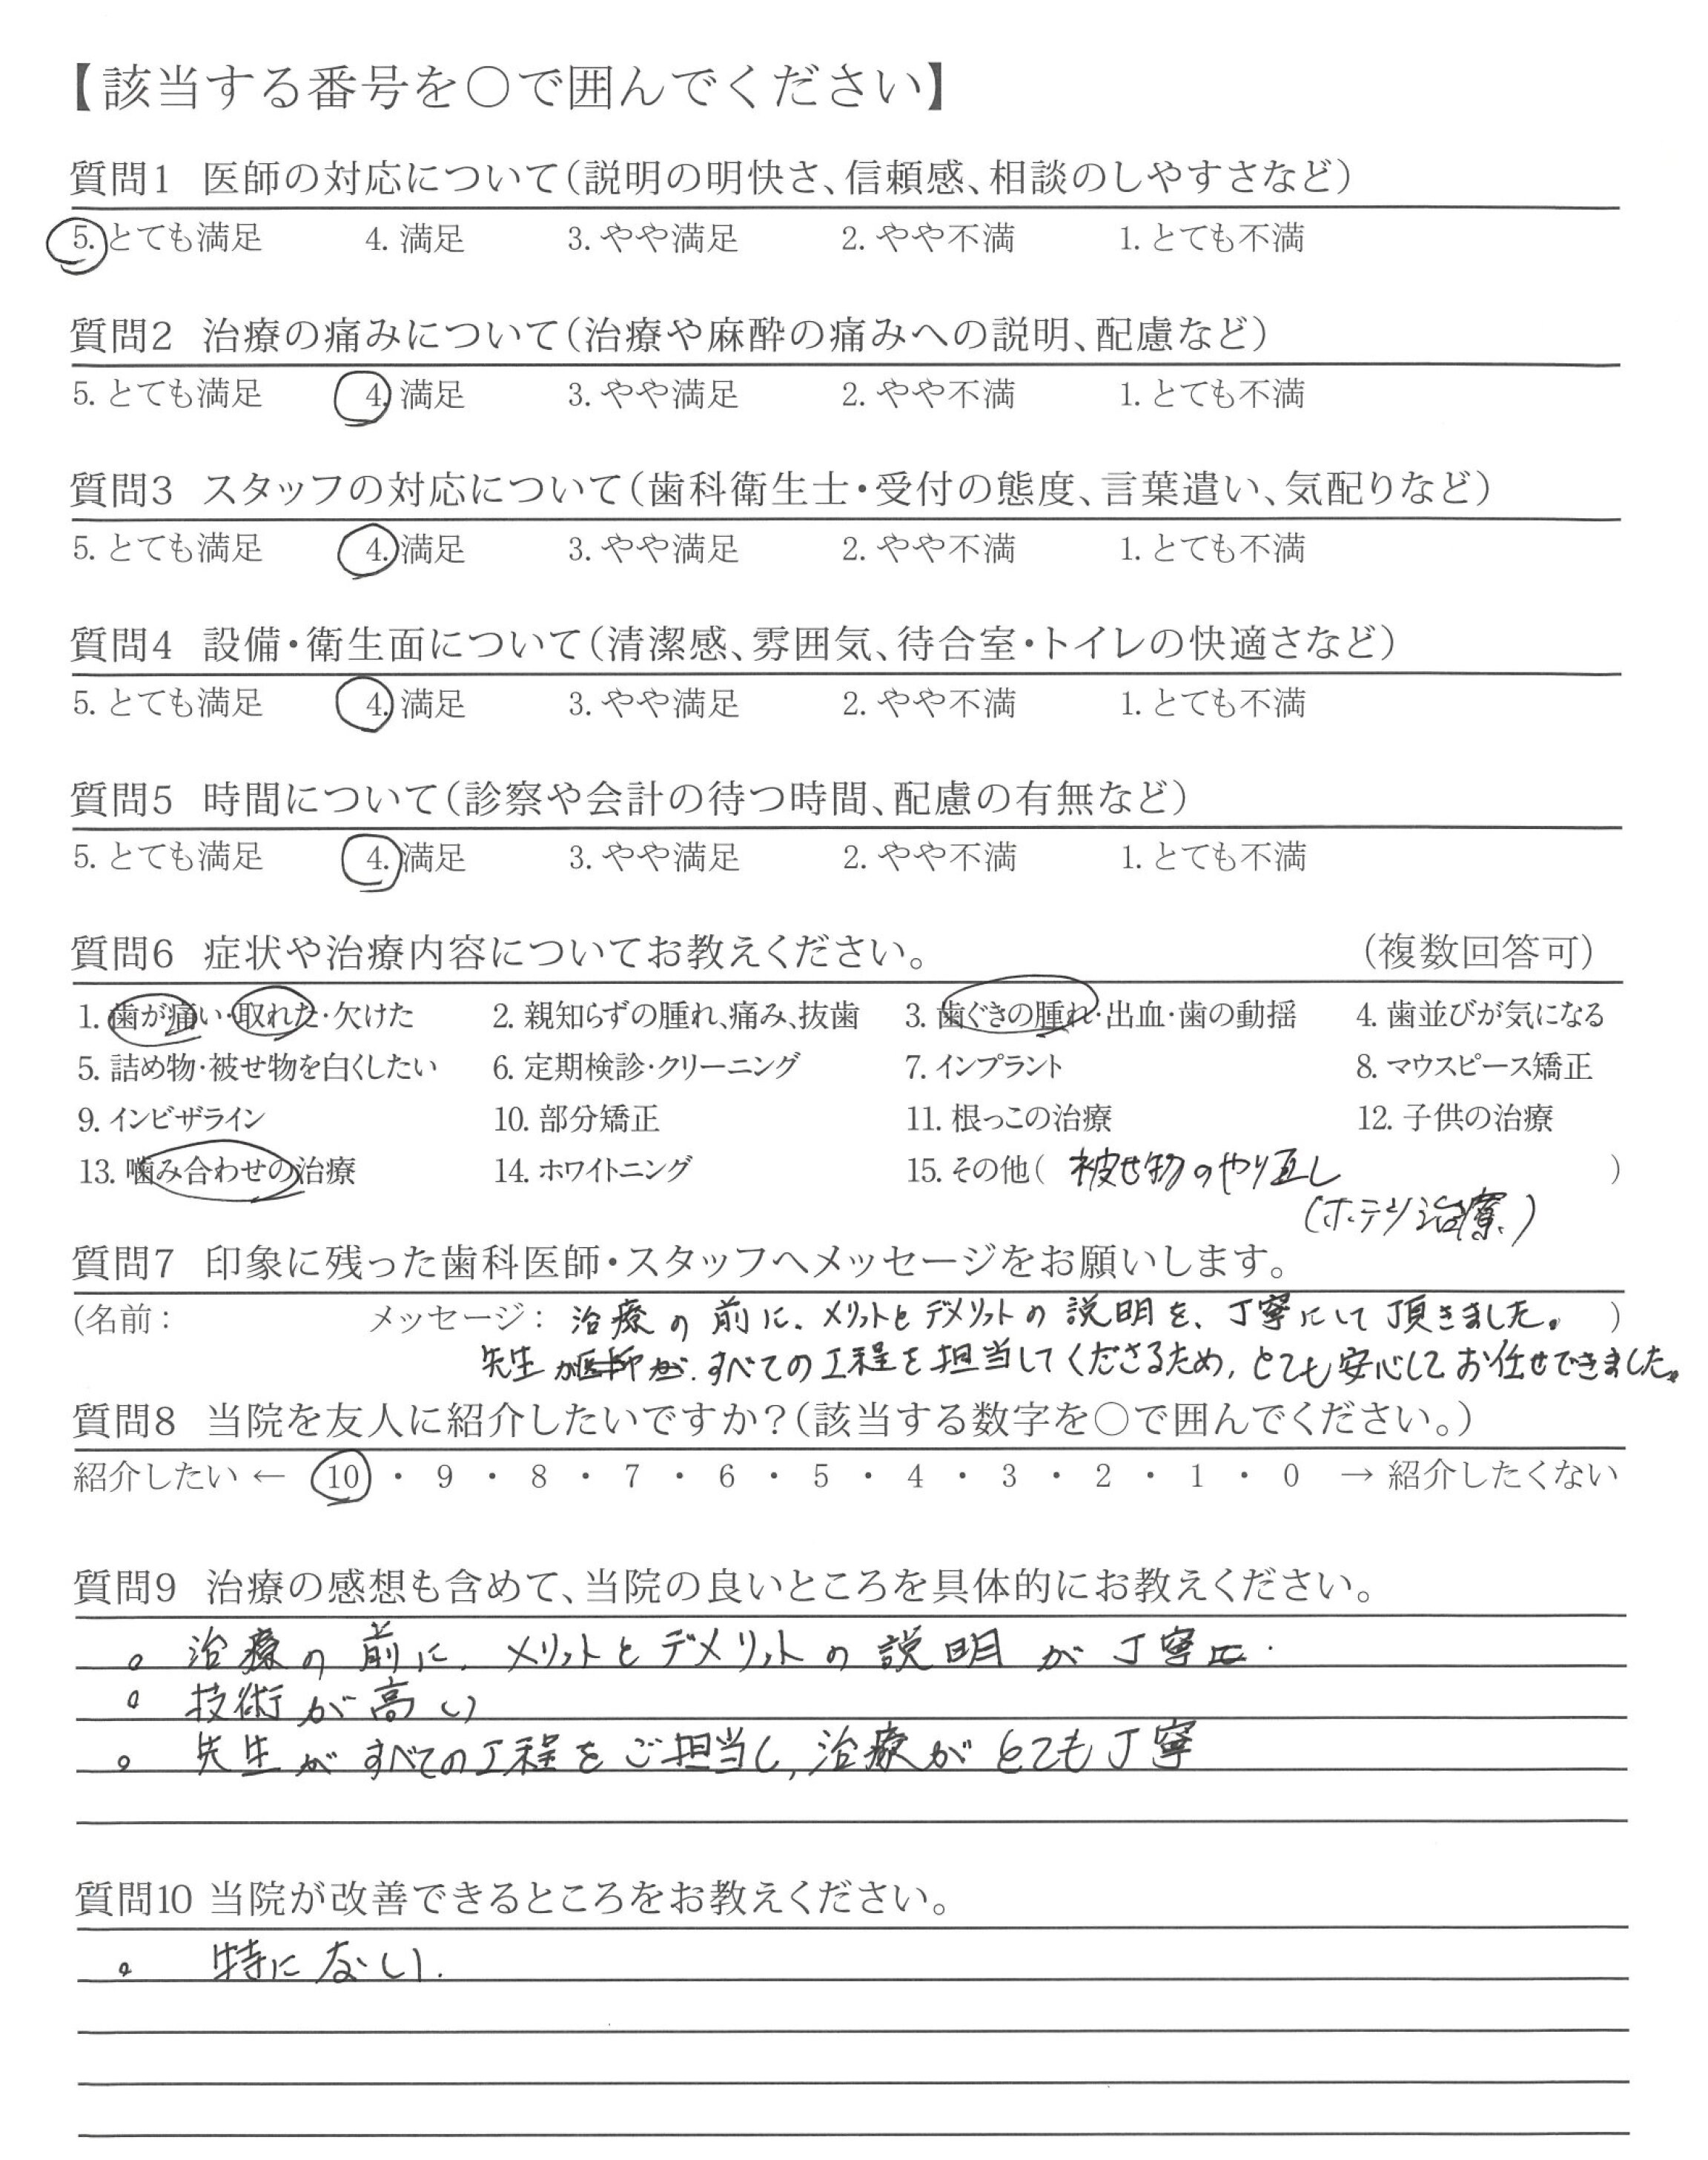 【該当する番号を〇で囲んでください】
質問1 医師の対応について(説明の明快さ、信頼感、相談のしやすさなど)
5. とても満足 4. 満足 3. やや満足 2. やや不満 1. とても不満
質問2 治療の痛みについて(治療や麻酔の痛みへの説明、配慮など)
5. とても満足 4. 満足 3. やや満足 2. やや不満 1. とても不満
質問3 スタッフの対応について(歯科衛生士・受付の態度、言葉遣い、気配りなど)
5. とても満足 4. 満足 3. やや満足 2. やや不満 1. とても不満
質問4 設備・衛生面について(清潔感、雰囲気、待合室・トイレの快適さなど)
5. とても満足 4. 満足 3. やや満足 2. やや不満 1. とても不満
質問5 時間について(診察や会計の待つ時間、配慮の有無など)
5. とても満足 4. 満足 3. やや満足 2. やや不満 1. とても不満
質問6 症状や治療内容についてお教えください。 (複数回答可)
1. 歯が痛い・取れた・欠けた 2. 親知らずの腫れ、痛み、抜歯 3. 歯ぐきの腫れ・出血・歯の動揺 4. 歯並びが気になる
5. 詰め物・被せ物を白くしたい 6. 定期検診・クリーニング 7. インプラント 8. マウスピース矯正
9. インビザライン 10. 部分矯正 11. 根っこの治療 12. 子供の治療
13. 噛み合わせの治療 14. ホワイトニング 15. その他( 被せ物のやり直し )
(ホテツ治療)
質問7 印象に残った歯科医師・スタッフへメッセージをお願いします。
(名前: メッセージ: 治療の前に、メリットとデメリットの説明を、丁寧にして頂きました。 )
先生が すべての工程を担当してくださるため、とても安心してお任せできました。
質問8 当院を友人に紹介したいですか?(該当する数字を〇で囲んでください。)
紹介したい ← 10 ・ 9 ・ 8 ・ 7 ・ 6 ・ 5 ・ 4 ・ 3 ・ 2 ・ 1 ・ 0 → 紹介したくない
質問9 治療の感想も含めて、当院の良いところを具体的にお教えください。
。治療の前に、メリットとデメリットの説明が丁寧
。技術が高い
。先生がすべての工程をご担当し、治療がとても丁寧
質問10 当院が改善できるところをお教えください。
。特にない.